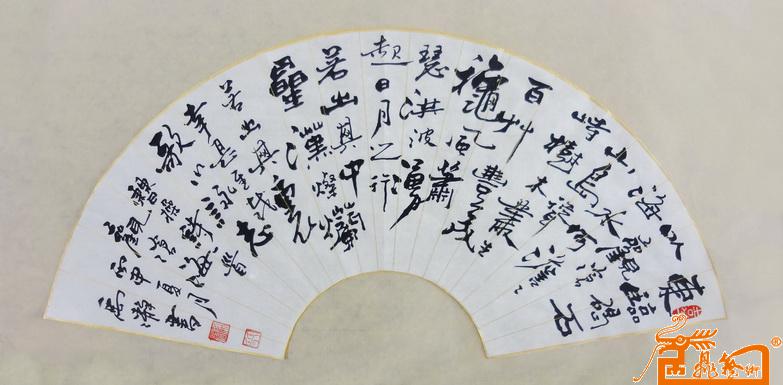 東臨碣石
以觀滄
海水何澹々
山島
峙樹木叢生
百艸豐茂
龝風蕭
瑟洪波湧
起日月之行
若出其中
星漢燦爛
若出其裏
幸甚至哉
歌以詠志
曹操詩觀滄海
丙申夏月
書